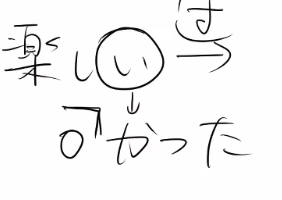 楽しい→
↓
かった